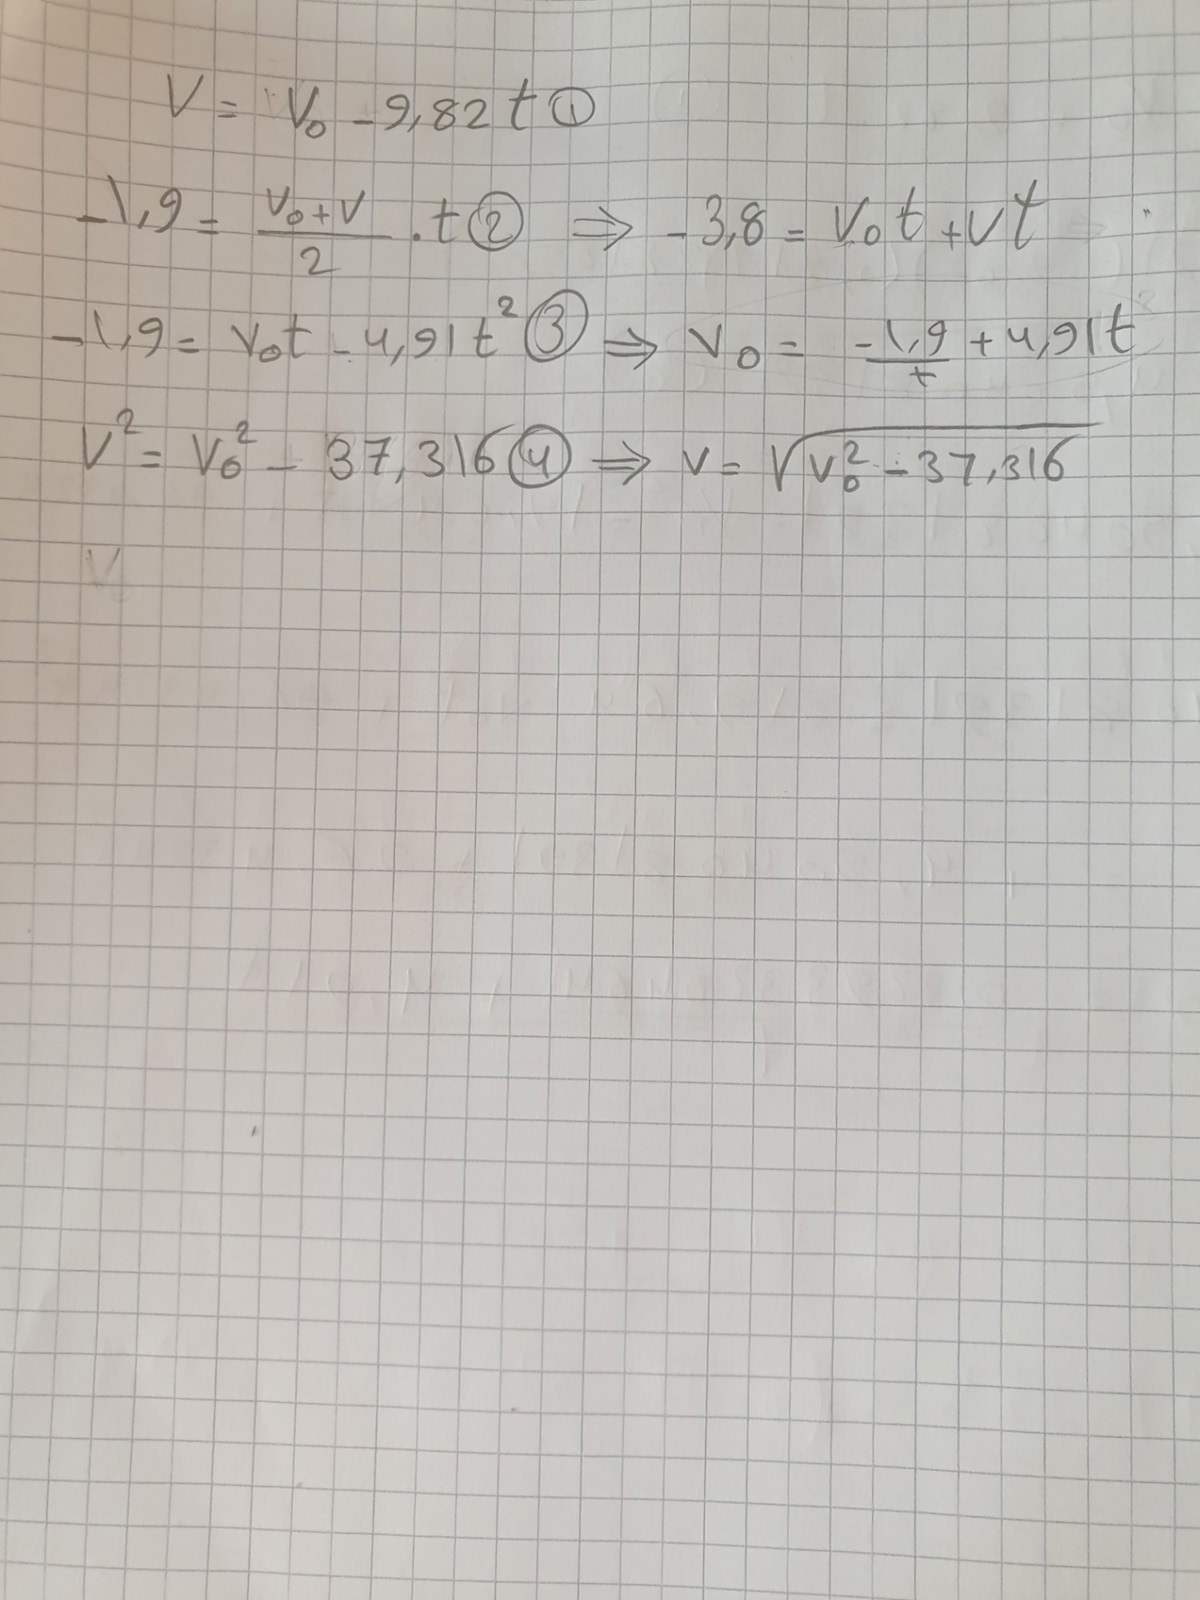 V = V₀ - 9,82 t ①
-1,9 = (V₀+V)/2 · t ② ⇒ -3,8 = V₀t + Vt
-1,9 = V₀t - 4,91t² ③ ⇒ V₀ = -1,9/t + 4,91t
V² = V₀² - 37,316 ④ ⇒ V = √(V₀² - 37,316)
V